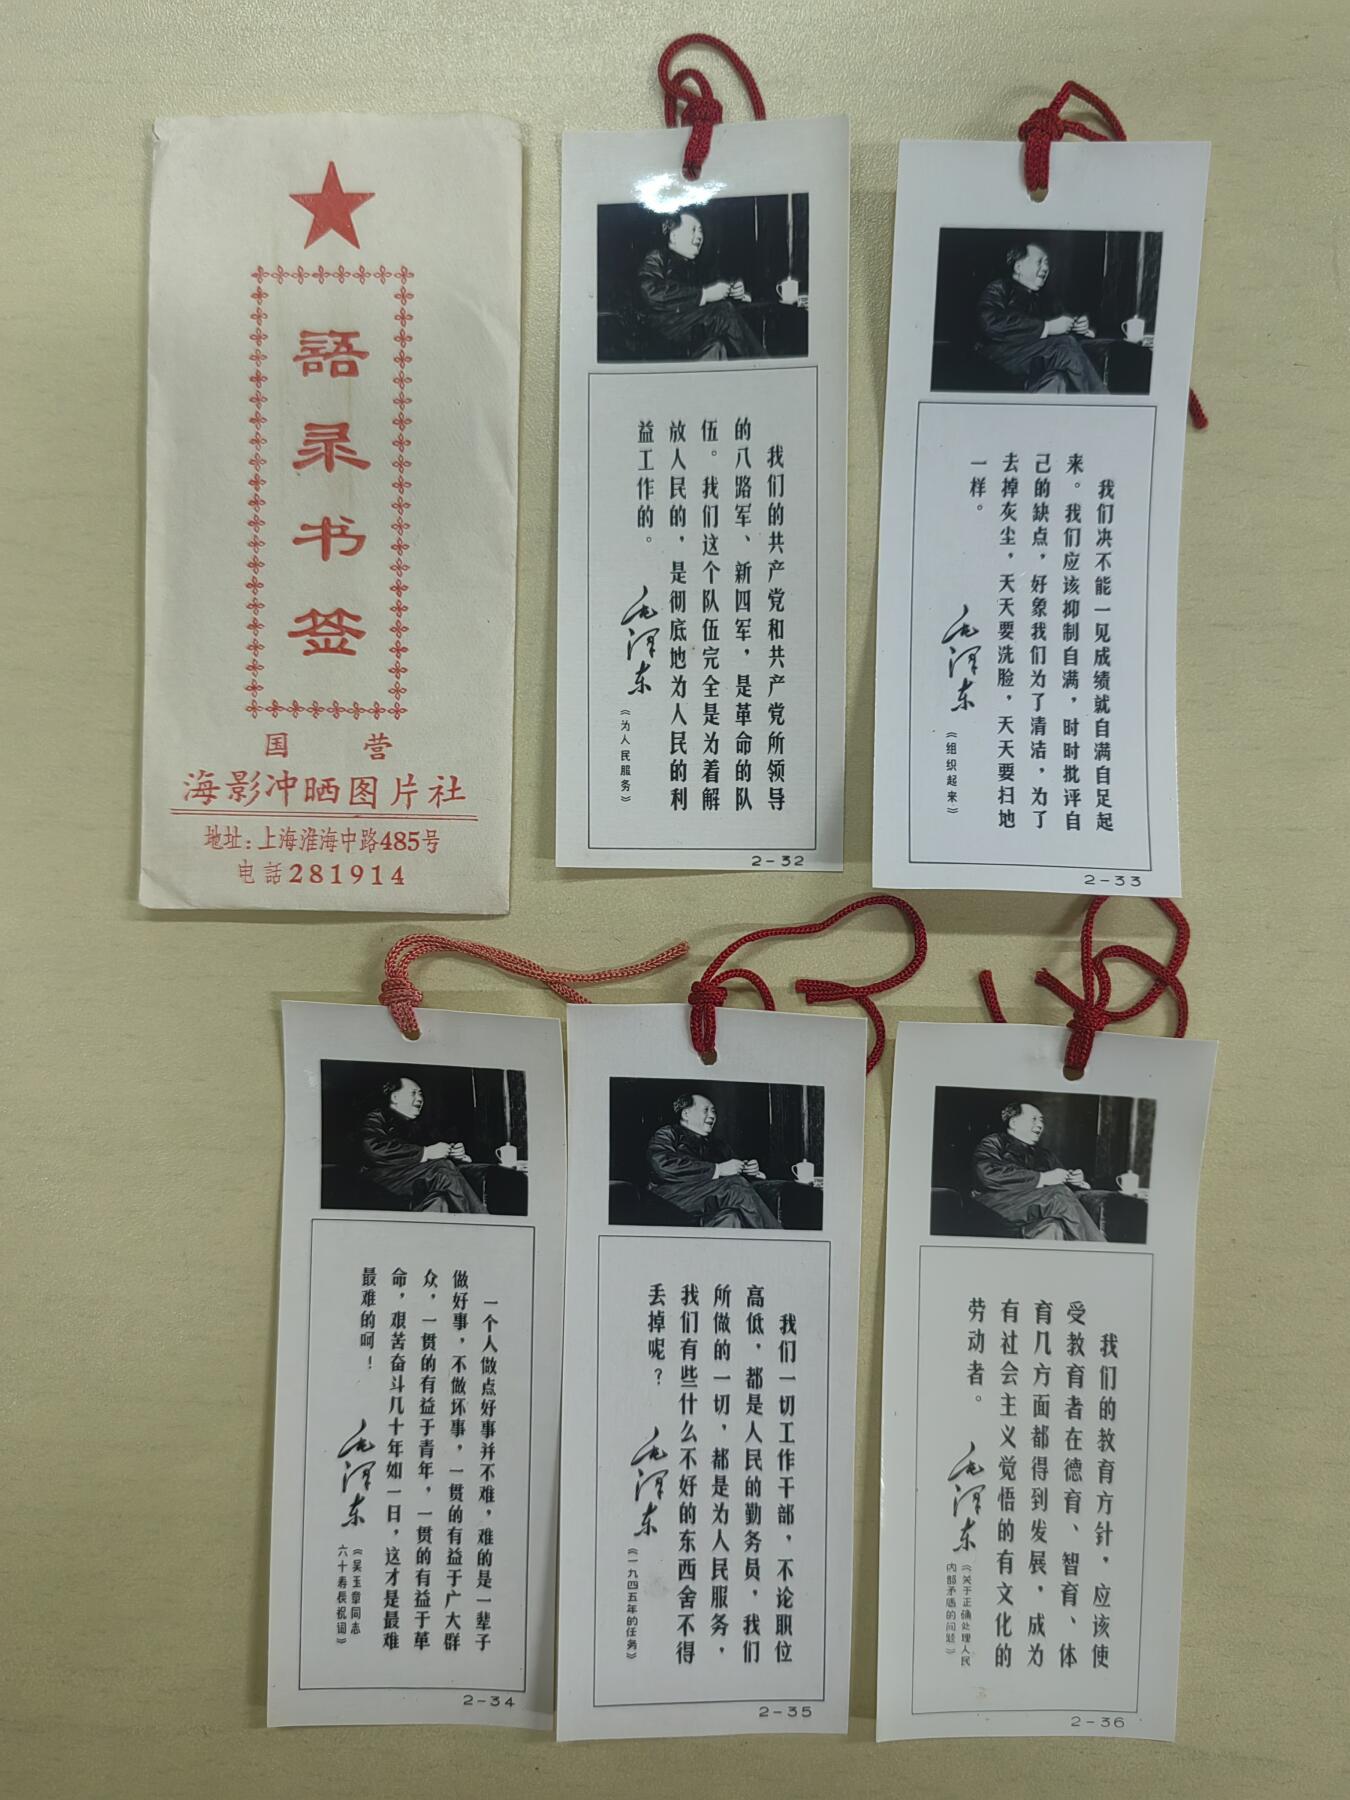 語录书签
国营
海影冲晒图片社
地址：上海淮海中路485号
电話281914
我们的共产党和共产党所领导
的八路军、新四军，是革命的队
伍。我们这个队伍完全是为着解
放人民的，是彻底地为人民的利
益工作的。
毛泽东
《为人民服务》
2-32
我们决不能一见成绩就自满自足起
来。我们应该抑制自满，时时批评自
己的缺点，好象我们为了清洁，为了
去掉灰尘，天天要洗脸，天天要扫地
一样。
毛泽东
《组织起来》
2-33
一个人做点好事并不难，难的是一辈子
做好事，不做坏事，一贯的有益于广大群
众，一贯的有益于青年，一贯的有益于革
命，艰苦奋斗几十年如一日，这才是最难
最难的呵！
毛泽东
《吴玉章同志
六十寿辰祝词》
2-34
我们一切工作干部，不论职位
高低，都是人民的勤务员，我们
所做的一切，都是为人民服务，
我们有些什么不好的东西舍不得
丢掉呢？
毛泽东
《一九四五年的任务》
2-35
我们的教育方针，应该使
受教育者在德育、智育、体
育几方面都得到发展，成为
有社会主义觉悟的有文化的
劳动者。
毛泽东
《关于正确处理人民
内部矛盾的问题》
2-36